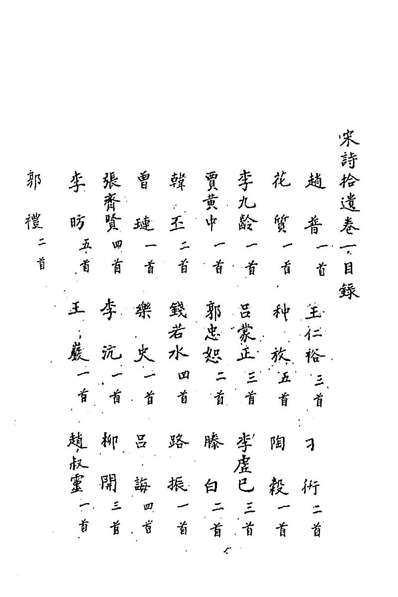 宋詩拾遺卷一目錄
趙普一首 王仁裕三首 刁衎二首
花質一首 种放五首 陶穀一首
李九齡一首 呂蒙正三首 李虛已三首
賈黃中一首 郭忠恕二首 滕白二首
韓丕二首 錢若水四首 路振一首
曾璉一首 樂史一首 呂誨四首
張齊賢四首 李沆一首 柳開三首
李昉五首 王巖一首 趙叔靈一首
郭禮二首